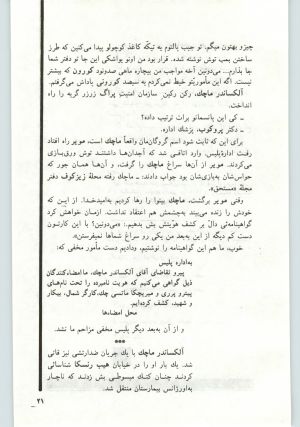 چیزو بهتون میگم. تو جیب پالتوم یه تیکّه کاغذ کوچولو پیدا می‌کنین که طرز
ساختن بمب توش نوشته شده. قرار بود من اونو یواشکی این جا تو دفتر شما
جا بذارم... می‌دونین آخه مواجب من بیچاره ماهی صدونود کورون که بیشتر
نیست. اگه این مأموریتو خبط نمی‌کردم یه سیصد کورونی پاداش می‌گرفتم.
آلکساندر ماچک، رکن رکین سازمان امنیت پراگ زرزر گریه را راه
انداخت.
ـ کی این پانسمانو برات ترتیب داده؟
ـ دکتر پروکوپ، پزشک اداره.
برای این که ثابت شود اسم گروگان‌مان واقعاً ماچک است، مویر راه افتاد
رفت ادارهٔ پلیس. وارد اتاقی شد که آجدان‌ها داشتند توش ورق‌بازی
می‌کردند. مویر از آن‌ها سراغ ماچک را گرفت، و آن‌ها همان جور که
حواس‌شان به بازی‌شان بود جواب دادند: ـ ماچک رفته محلهٔ ژیژکوف دفتر
مجلهٔ «مستحق».
وقتی مویر برگشت، ماچک بینوا را رها کردیم به‌امیدخدا. از ایـن که
خودش را زنده می‌بیند به‌چشمش هم اعتقاد نداشت. ازمان خواهش کرد
گواهینامه‌ئی دالّ بر کشف هویّتش بش بدهیم: «می‌دونین؟ با این کارتون
دست کم دیگه از این به‌بعد یکی رو سراغ شماها نمیفرستن».
خوب، ما هم این گواهینامه را نوشتیم، ودادیم دست مأمور مخفی که:
به‌اداره پلیس
پیرو تقاضای آقای آلکساندر ماچک، ما امضاءکنندگان
ذیل گواهی می‌کنیم که هویت نامبرده را تحت نام‌های
پیترو پرری و میریچکا مانسی چک، کارگر شمال، بیکار
و شهید، کشف کرده‌ایم.
محل امضاءها
و از آن به‌بعد دیگر پلیس مخفی مزاحم ما نشد.
***
آلکساندر ماچک با یك جریان ضدارتشی نیز قاتی
شد. یك بار او را در خیابان هیب رنسکا شناسائی
کردند چنان کتک مبسوطی بش زدند که ناچار
به‌اورژانس بیمارستان منتقل شد.
۲۱